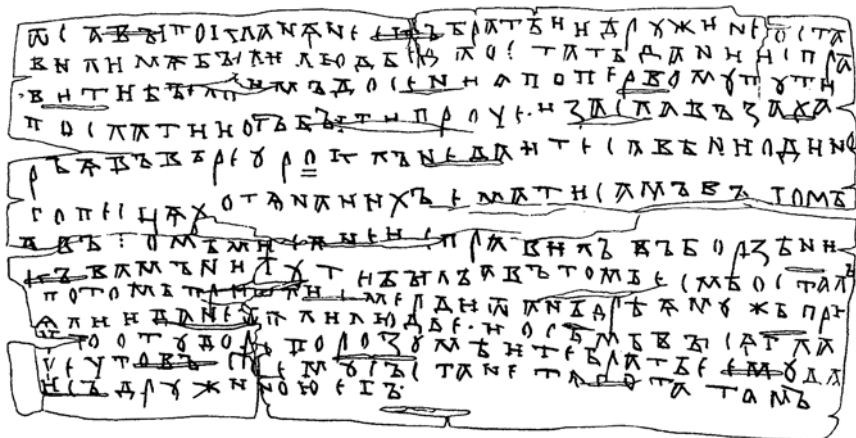 ѿ савъі покланѧнее къ братьи и дружине оста
вили мѧ бъли людье а до остать дани испра
вити бъіло имъ досени а по первому пути
послати и отъбъіти проче и заславъ заха
рьѧ въ вѣре уроклъ не даите савѣ ни одино
го песцѧ хотѧ на нихъ емати самъ въ томь
а въ томь ми сѧ не исправилъ въборзѣ ни
къ вамъ ни ту ти бъілъ а въ томь есмь осталъ
потомь пришли смерди ѿ андрѣѧ мужь при
ѧли и дане ѿѧли людье и осмь въісѧгла
что о тудоре порозумѣите братье ему да
че у то въ емусь стане тѧгота тамъ
и съ дружиною егъ